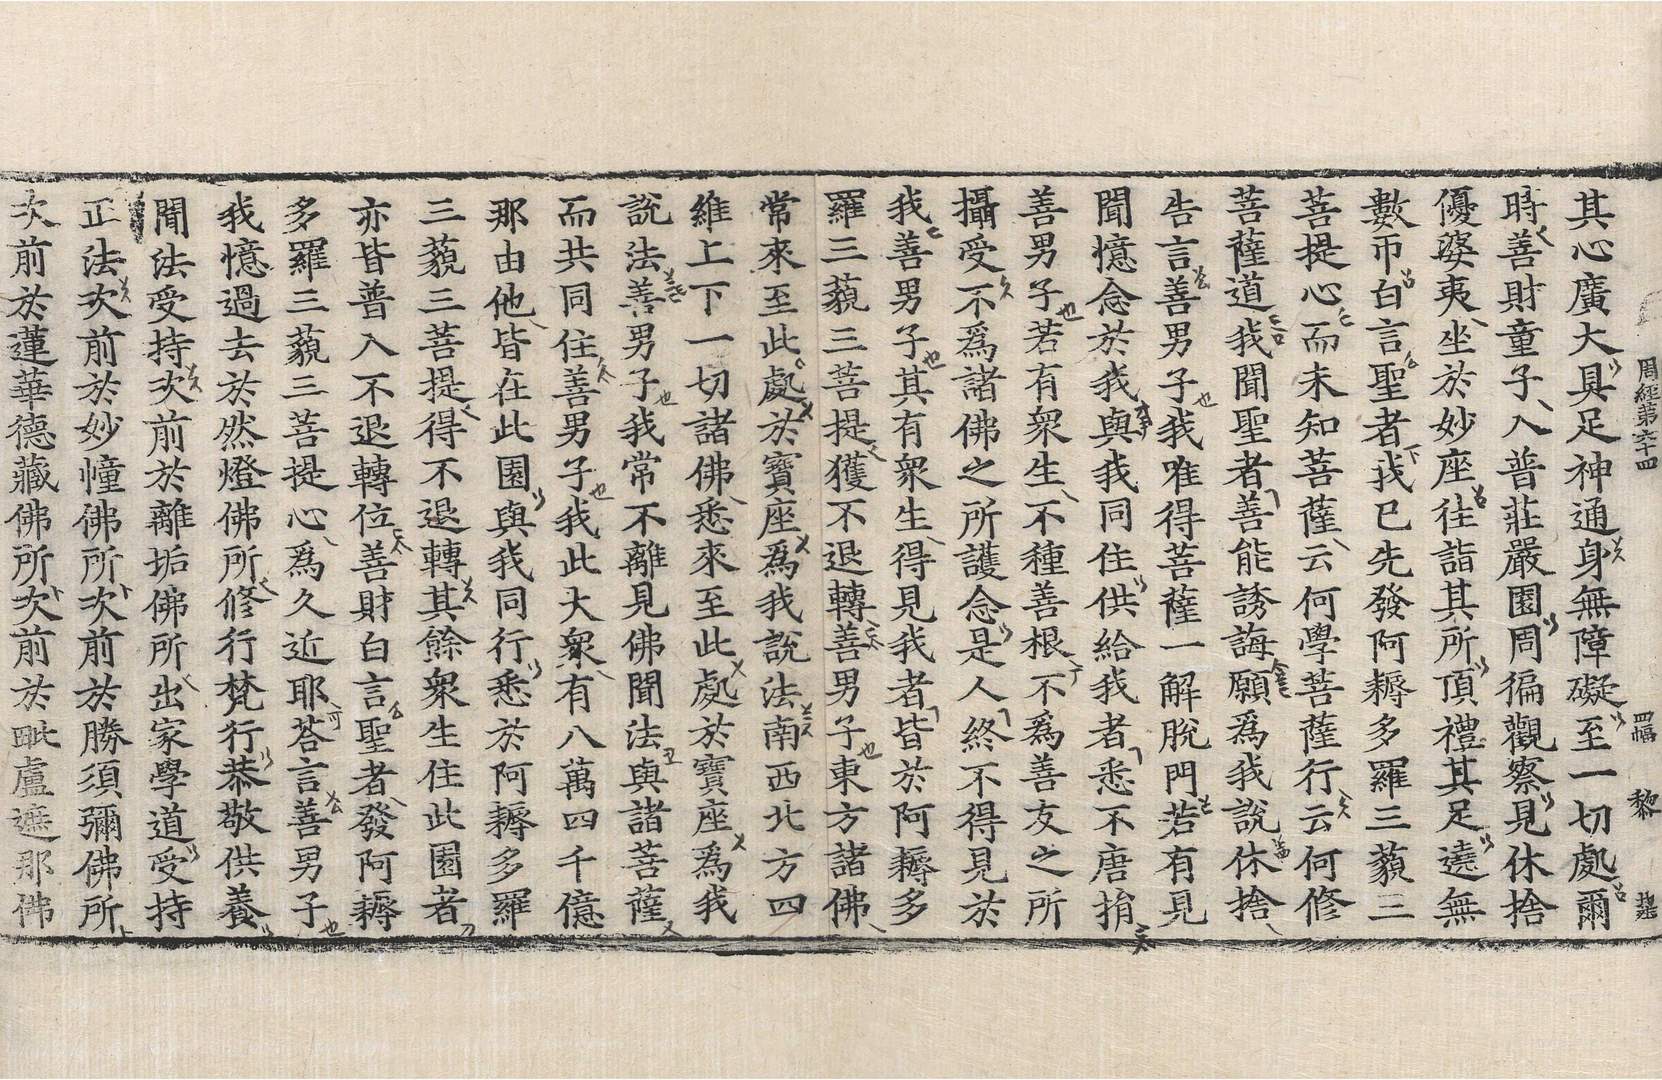 周經第六十四 四幅 黎
其心廣大具足神通身無障礙至一切處爾
時善財童子入普莊嚴園周徧觀察見休捨
優婆夷坐於妙座往詣其所頂禮其足遶無
數帀白言聖者我已先發阿耨多羅三藐三
菩提心而未知菩薩云何學菩薩行云何修
菩薩道我聞聖者善能誘誨願爲我說休捨
告言善男子我唯得菩薩一解脫門若有見
聞憶念於我與我同住供給我者悉不唐捐
善男子若有衆生不種善根不爲善友之所
攝受不爲諸佛之所護念是人終不得見於
我善男子其有衆生得見我者皆於阿耨多
羅三藐三菩提獲不退轉善男子東方諸佛
常來至此處於寶座爲我說法南西北方四
維上下一切諸佛悉來至此處於寶座爲我
說法善男子我常不離見佛聞法與諸菩薩
而共同住善男子我此大衆有八萬四千億
那由他皆在此園與我同行悉於阿耨多羅
三藐三菩提得不退轉其餘衆生住此園者
亦皆普入不退轉位善財白言聖者發阿耨
多羅三藐三菩提心爲久近耶荅言善男子
我憶過去於然燈佛所修行梵行恭敬供養
聞法受持次前於離垢佛所出家學道受持
正法次前於妙幢佛所次前於勝須彌佛所
次前於蓮華德藏佛所次前於毗盧遮那佛